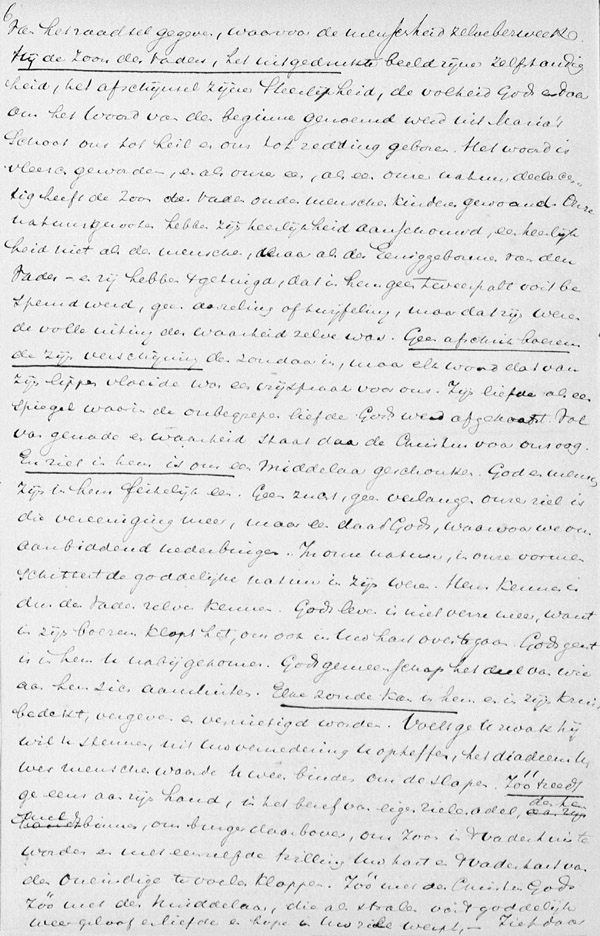 6
van het raadsel gegeven, waarvoor de menschheid zelve bezweek.
Hij de Zoon des Vaders, het uitgedrukte beeld zijner zelfstandig
heid, het afschijnsel zijner Heerlijkheid, de volheid Gods er daar
om het Woord van der beginne genoemd werd uit Maria's
Schoot ons tot heil en ons tot redding geboren. Het woord is
vleesch geworden, en als onzer een, als een onzer natuur deelach
tig heeft de Zoon des Vaders onder menschen kinderen gewoond. Onze
natuurgenooten hebben zijn heerlijkheid aanschouwd, een heerlijk
heid niet als der menschen, maar als des Eeniggeborenen van den
Vader - en zij hebben getuigd, dat in hem geen tweespalt ooit be
speurd werd, geen aarzeling of twijfeling, maar dat zijn wezen
de volle uiting der waarheid zelve was. Geen afschrik boezem
de zijn verschijning den zondaar in, maar elk woord dat van
zijn lippen vloeide was een vrijspraak voor ons. Zijn liefde als een
spiegel waarin de onbegrepen liefde Gods werd afgekaatst. Vol
van genade en waarheid staat daar de Christus voor ons oog.
En ziet in hem is ons een Middelaar geschonken. God en mensch
zijn in hem feitelijk een. Geen zucht, geen verlangen onzer ziel is
die vereeniging meer, maar een daad Gods, waarvoor we ons
aanbiddend nederbuigen. In onze natuur, in onze vormen
schittert de goddelijke natuur in zijn wezen. Hem kennen is
dus den Vader zelven kennen. Gods leven is niet verre meer, want
in zijn boezem klopt het, om ook in Uw hart over te gaan. Gods geest
is in hem U nabij gekomen. Gods gemeenschap het deel van wie
aan hem zich aansluiten. Elke zonde kan in hem en in zijn kruis
bedekt, vergeven en vernietigd worden. Voelt ge U zwak hij
wil U steunen, uit Uw vernedering U opheffen, het diadeem U
wer menschenwaarde U weer binden om de slapen. Zóó treedt
ge eens aan zijn hand, in het besef van eigen zieleadel, den hemel
binnen, om burger daarboven, om Zoon in 't Vaderhuis te
worden en met eenzelfde trilling Uw hart en 't Vaderhart van
den Oneindige te voelen kloppen. Zóó met den Christus Gods
Zóó met den Middelaar, die als stralen van 't goddelijk
weer geloof en liefde en hope in Uw ziele werpt, - Ziet daar